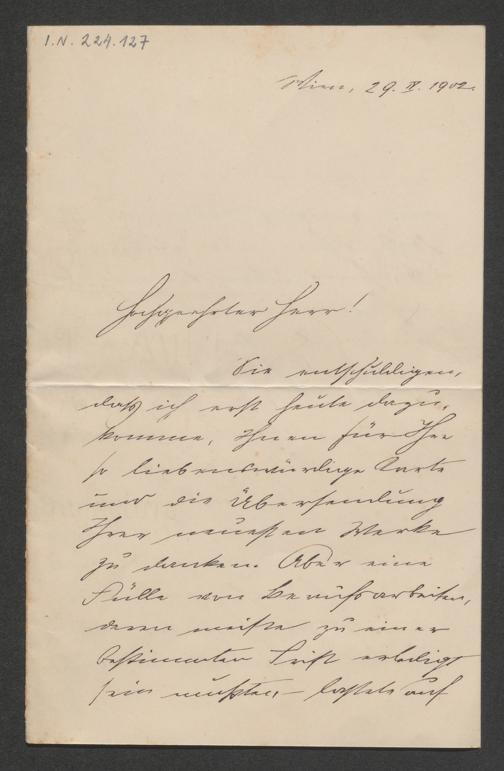 I.N. 224.127
Wien, 29. IV. 1902.
Hochgeehrter Herr!
Sie entschuldigen,
daß ich erst heute dazu
komme, Ihnen für Ihre
so liebenswürdige Karte
und die Übersendung
Ihrer neuesten Werke
zu danken. Aber eine
Fülle von Berufsarbeiten,
deren meiste zu einer
bestimmten Frist erledigt
sein mußten, – lastete auf